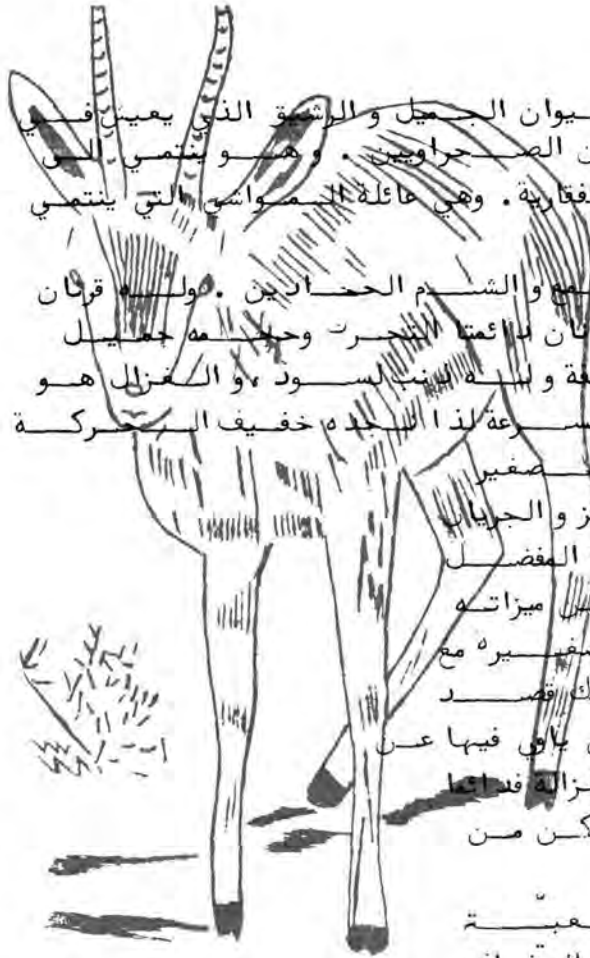 يوان الجميل و الرشيق الذي يعيش في
ن الصحراويين . و هو ينتمي الى
فقارية . وهي عائلة المواشي التي ينتمي
مع و الشم الحادين . وله قرنان
نان دائمتا التحرك وحجمه جميل
غة و له ذنب اسود ، و الغزال هو
سرعة لذا تجده خفيف الحركة
صغير
ز و الجريان
المفضل
ن ميزاته
صفيره مع
ك قصد
ياوي فيها عن
زالة فدائما
كن من
عبّة